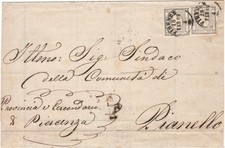 Illmo: Sig: Sindaco
della Comunità di
Provincia e Circondario
di Piacenza
Pianello